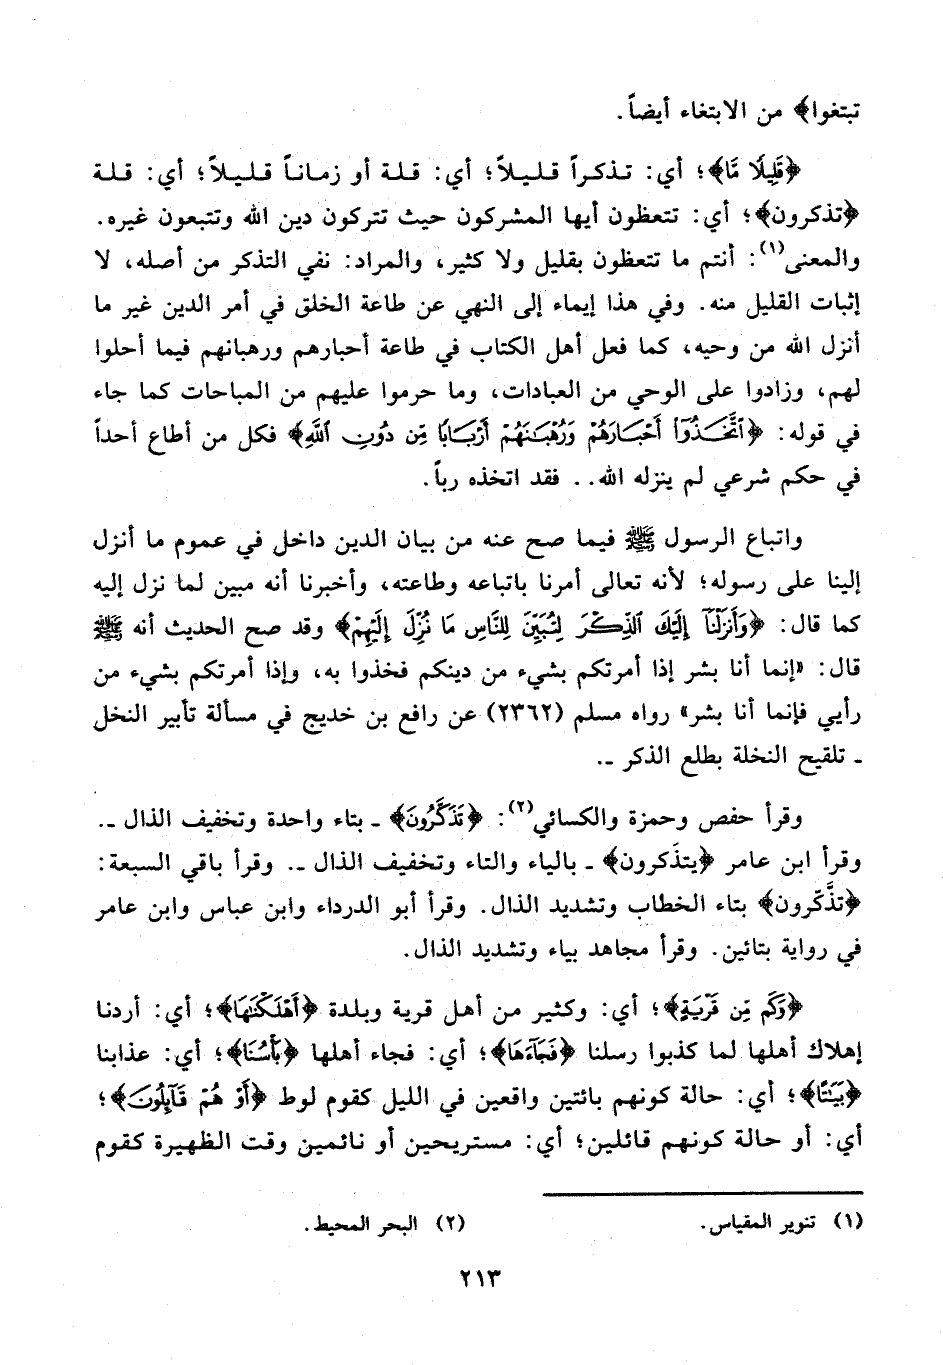 تبتغوا﴾ من الابتغاء أيضاً.
﴿قَلِيلًا مَّا﴾؛ أي: تذكراً قليلاً؛ أي: قلة أو زماناً قليلاً؛ أي: قلة
﴿تذكرون﴾؛ أي: تتعظون أيها المشركون حيث تتركون دين الله وتتبعون غيره.
والمعنى(١): أنتم ما تتعظون بقليل ولا كثير، والمراد: نفي التذكر من أصله، لا
إثبات القليل منه. وفي هذا إيماء إلى النهي عن طاعة الخلق في أمر الدين غير ما
أنزل الله من وحيه، كما فعل أهل الكتاب في طاعة أحبارهم ورهبانهم فيما أحلوا
لهم، وزادوا على الوحي من العبادات، وما حرموا عليهم من المباحات كما جاء
في قوله: ﴿ٱتَّخَذُوٓا۟ أَحْبَارَهُمْ وَرُهْبَـٰنَهُمْ أَرْبَابًا مِّن دُونِ ٱللَّهِ﴾ فكل من أطاع أحداً
في حكم شرعي لم ينزله الله.. فقد اتخذه رباً.
واتباع الرسول ﷺ فيما صح عنه من بيان الدين داخل في عموم ما أنزل
إلينا على رسوله؛ لأنه تعالى أمرنا باتباعه وطاعته، وأخبرنا أنه مبين لما نزل إليه
كما قال: ﴿وَأَنزَلْنَآ إِلَيْكَ ٱلذِّكْرَ لِتُبَيِّنَ لِلنَّاسِ مَا نُزِّلَ إِلَيْهِمْ﴾ وقد صح الحديث أنه ﷺ
قال: «إنما أنا بشر إذا أمرتكم بشيء من دينكم فخذوا به، وإذا أمرتكم بشيء من
رأيي فإنما أنا بشر» رواه مسلم (٢٣٦٢) عن رافع بن خديج في مسألة تأبير النخل
ـ تلقيح النخلة بطلع الذكر ـ.
وقرأ حفص وحمزة والكسائي(٢): ﴿تَذَكَّرُونَ﴾ ـ بتاء واحدة وتخفيف الذال ـ.
وقرأ ابن عامر ﴿يتذَكرون﴾ ـ بالياء والتاء وتخفيف الذال ـ. وقرأ باقي السبعة:
﴿تذَّكّرون﴾ بتاء الخطاب وتشديد الذال. وقرأ أبو الدرداء وابن عباس وابن عامر
في رواية بتائين. وقرأ مجاهد بياء وتشديد الذال.
﴿وَكَم مِّن قَرْيَةٍ﴾؛ أي: وكثير من أهل قرية وبلدة ﴿أَهْلَكْنَـٰهَا﴾؛ أي: أردنا
إهلاك أهلها لما كذبوا رسلنا ﴿فَجَآءَهَا﴾؛ أي: فجاء أهلها ﴿بَأْسُنَا﴾؛ أي: عذابنا
﴿بَيَـٰتًا﴾؛ أي: حالة كونهم بائتين واقعين في الليل كقوم لوط ﴿أَوْ هُمْ قَآئِلُونَ﴾؛
أي: أو حالة كونهم قائلين؛ أي: مستريحين أو نائمين وقت الظهيرة كقوم
(١) تنوير المقياس. (٢) البحر المحيط.
٢١٣